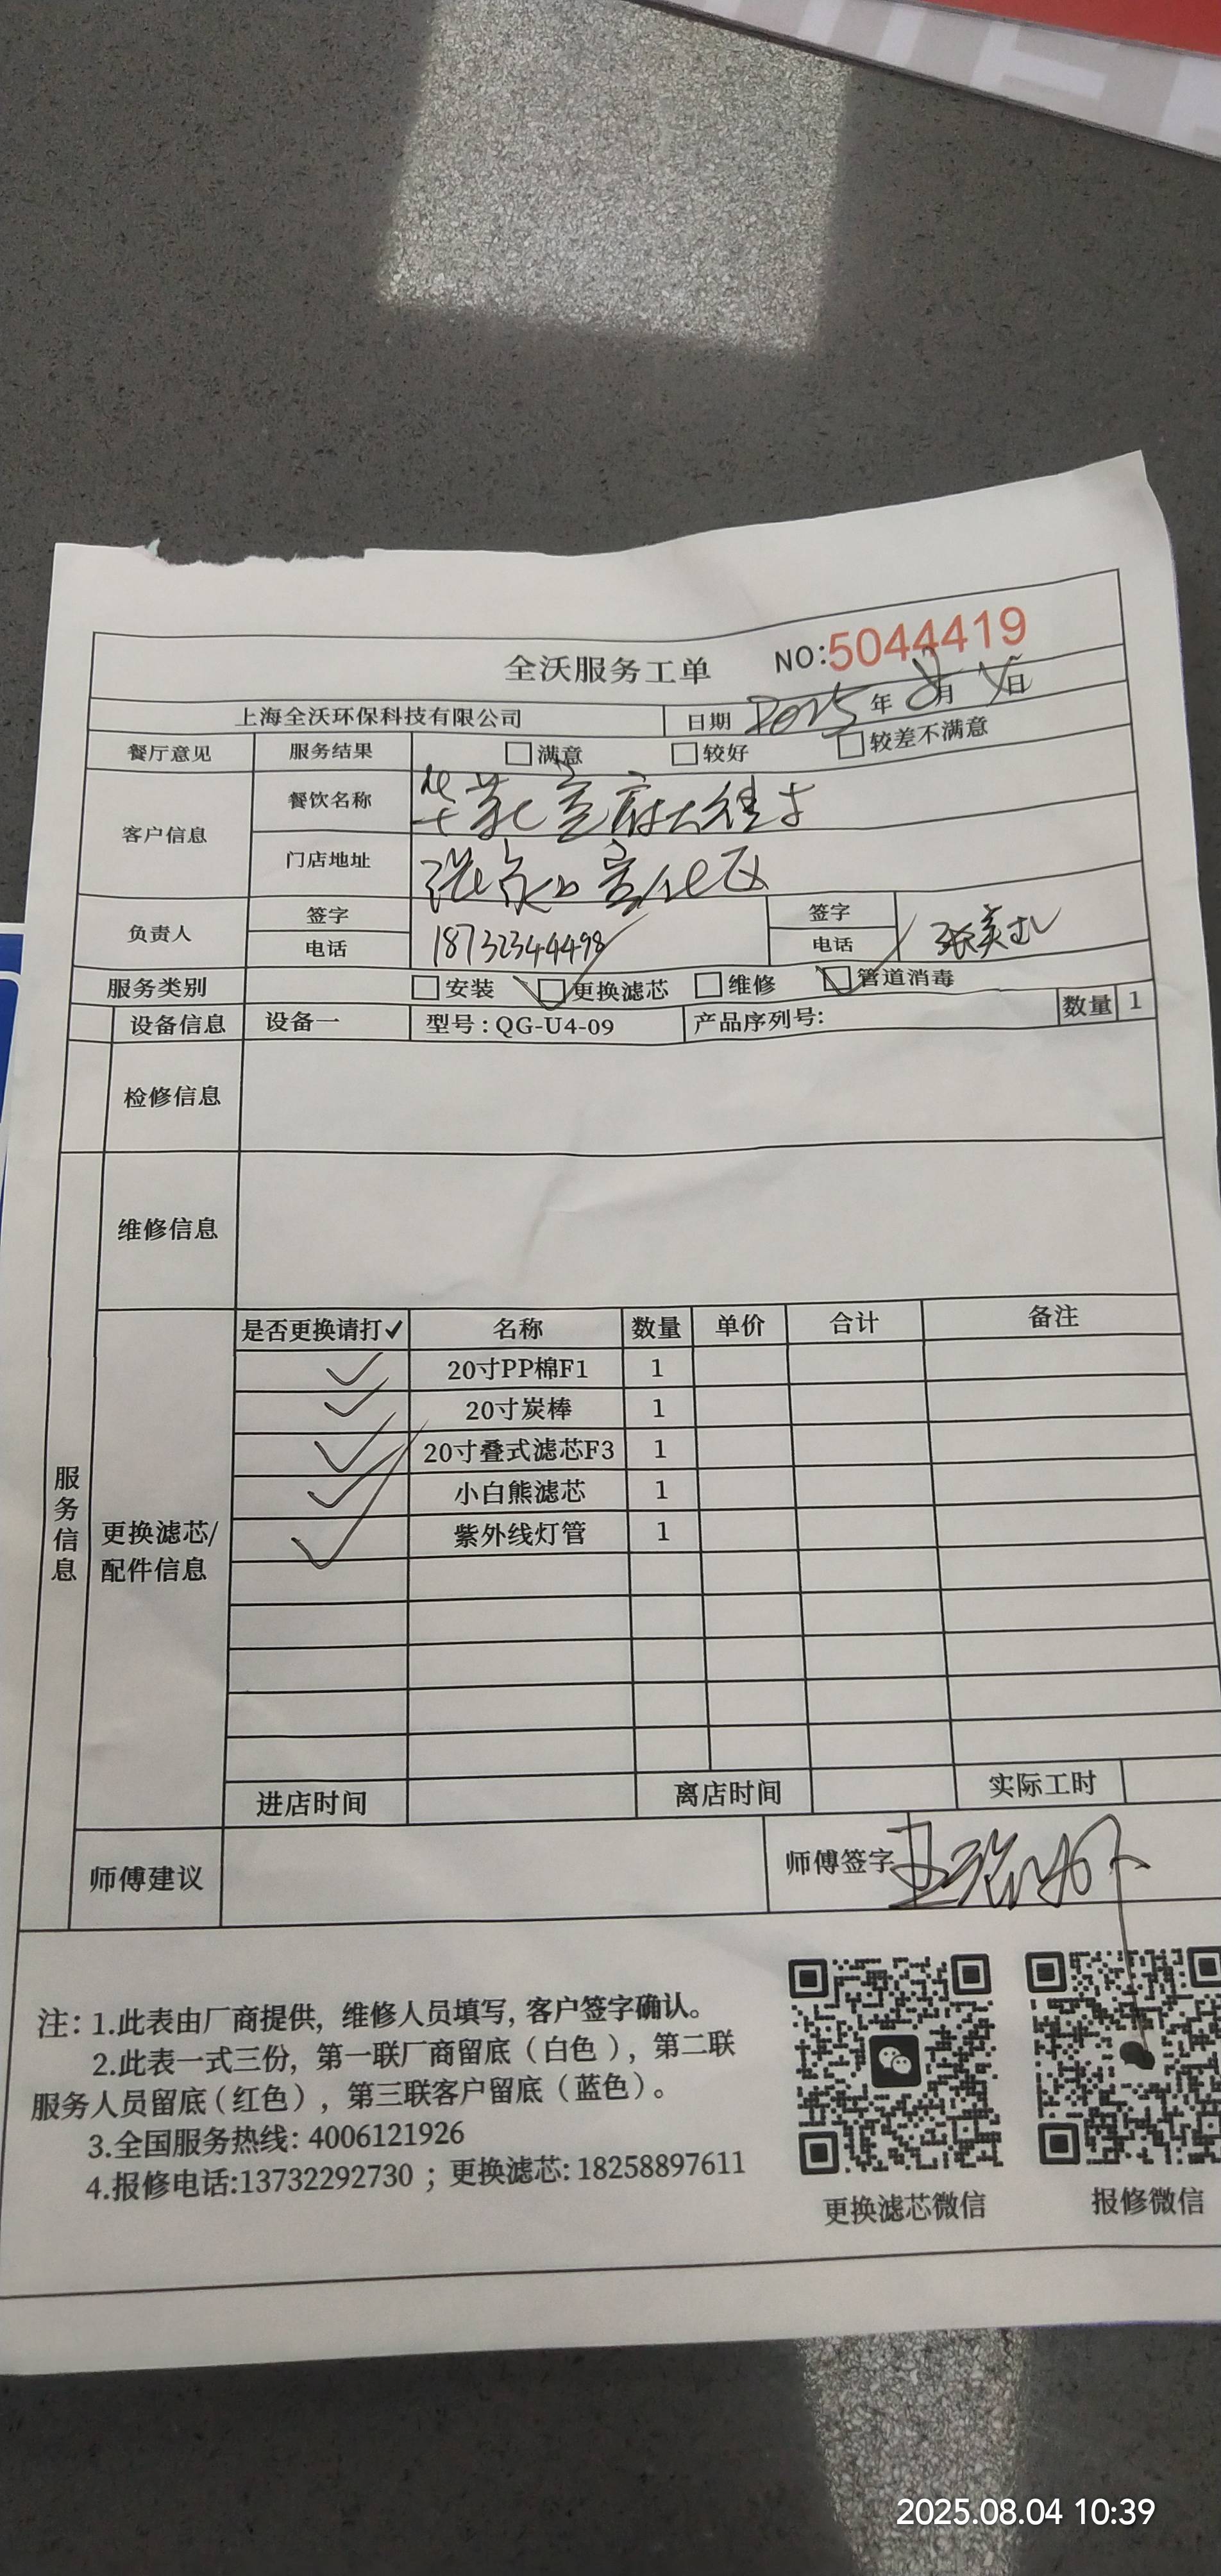 全沃服务工单
NO:5044419
上海全沃环保科技有限公司 日期 2025年8月4日
餐厅意见 服务结果 满意 较好 较差不满意
客户信息 餐饮名称 华莱士宣府大街店
门店地址 张家口宣化区
负责人 签字 签字
电话 18732344498 电话
服务类别 安装 更换滤芯 维修 管道消毒
设备信息 设备一 型号:QG-U4-09 产品序列号: 数量 1
检修信息
维修信息
服务信息
更换滤芯/配件信息
是否更换请打✓ 名称 数量 单价 合计 备注
✓ 20寸PP棉F1 1
✓ 20寸炭棒 1
✓ 20寸叠式滤芯F3 1
✓ 小白熊滤芯 1
✓ 紫外线灯管 1
进店时间 离店时间 实际工时
师傅建议 师傅签字
注: 1.此表由厂商提供, 维修人员填写, 客户签字确认。
2.此表一式三份, 第一联厂商留底(白色), 第二联
服务人员留底(红色), 第三联客户留底(蓝色)。
3.全国服务热线: 4006121926
4.报修电话:13732292730 ; 更换滤芯: 18258897611
更换滤芯微信 报修微信
2025.08.04 10:39